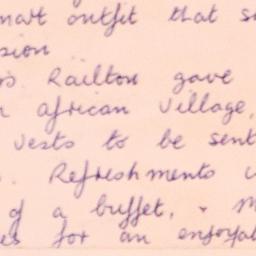 mart outfit that s
sion
s Railton gave
african village,
vests to be sent
. Refreshments w
of a buffet, + M
es for an enjoyab